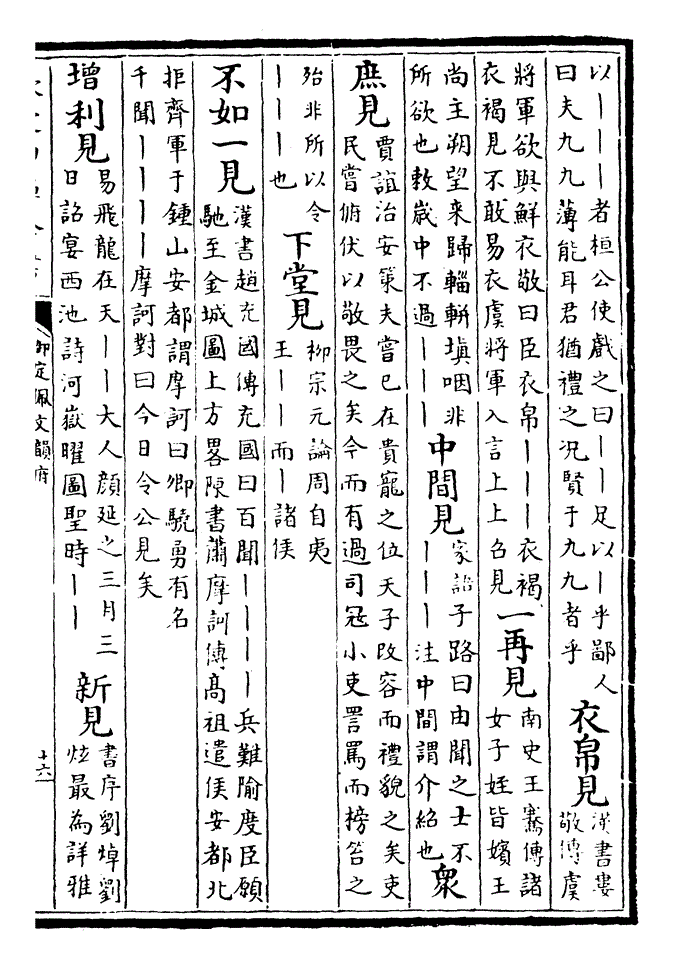 以丨丨丨者桓公使戲之曰丨丨足以丨乎鄙人
曰夫九九薄能耳君猶禮之况賢于九九者乎
衣帛見
漢書婁
敬傳虞
將軍欲與鮮衣敬曰臣衣帛丨丨丨衣褐
衣褐見不敢易衣虞將軍入言上上召見
一再見
南史王騫傳諸
女子姪皆嬪王
尚主朔望来歸輜軿填咽非
所欲也敕歲中不過丨丨丨
中間見
家語子路曰由聞之士不
丨丨丨注中間謂介紹也
衆
庶見
賈誼治安策夫嘗已在貴寵之位天子改容而禮貌之矣吏
民嘗俯伏以敬畏之矣今而有過司冦小吏詈罵而榜笞之
殆非所以令
丨丨丨也
下堂見
柳宗元論周自夷
王丨丨而丨諸侯
不如一見
漢書趙充國傳充國曰百聞丨丨丨丨兵難隃度臣願
馳至金城圖上方畧陳書蕭摩訶傳髙祖遣侯安都北
拒齊軍于鍾山安都謂摩訶曰卿驍勇有名
千聞丨丨丨丨摩訶對曰今日令公見矣
增利見
易飛龍在天丨丨大人顔延之三月三
日詔宴西池詩河嶽曜圖聖時丨丨
新見
書序劉焯劉
炫最為詳雅
御定佩文韻府
十六